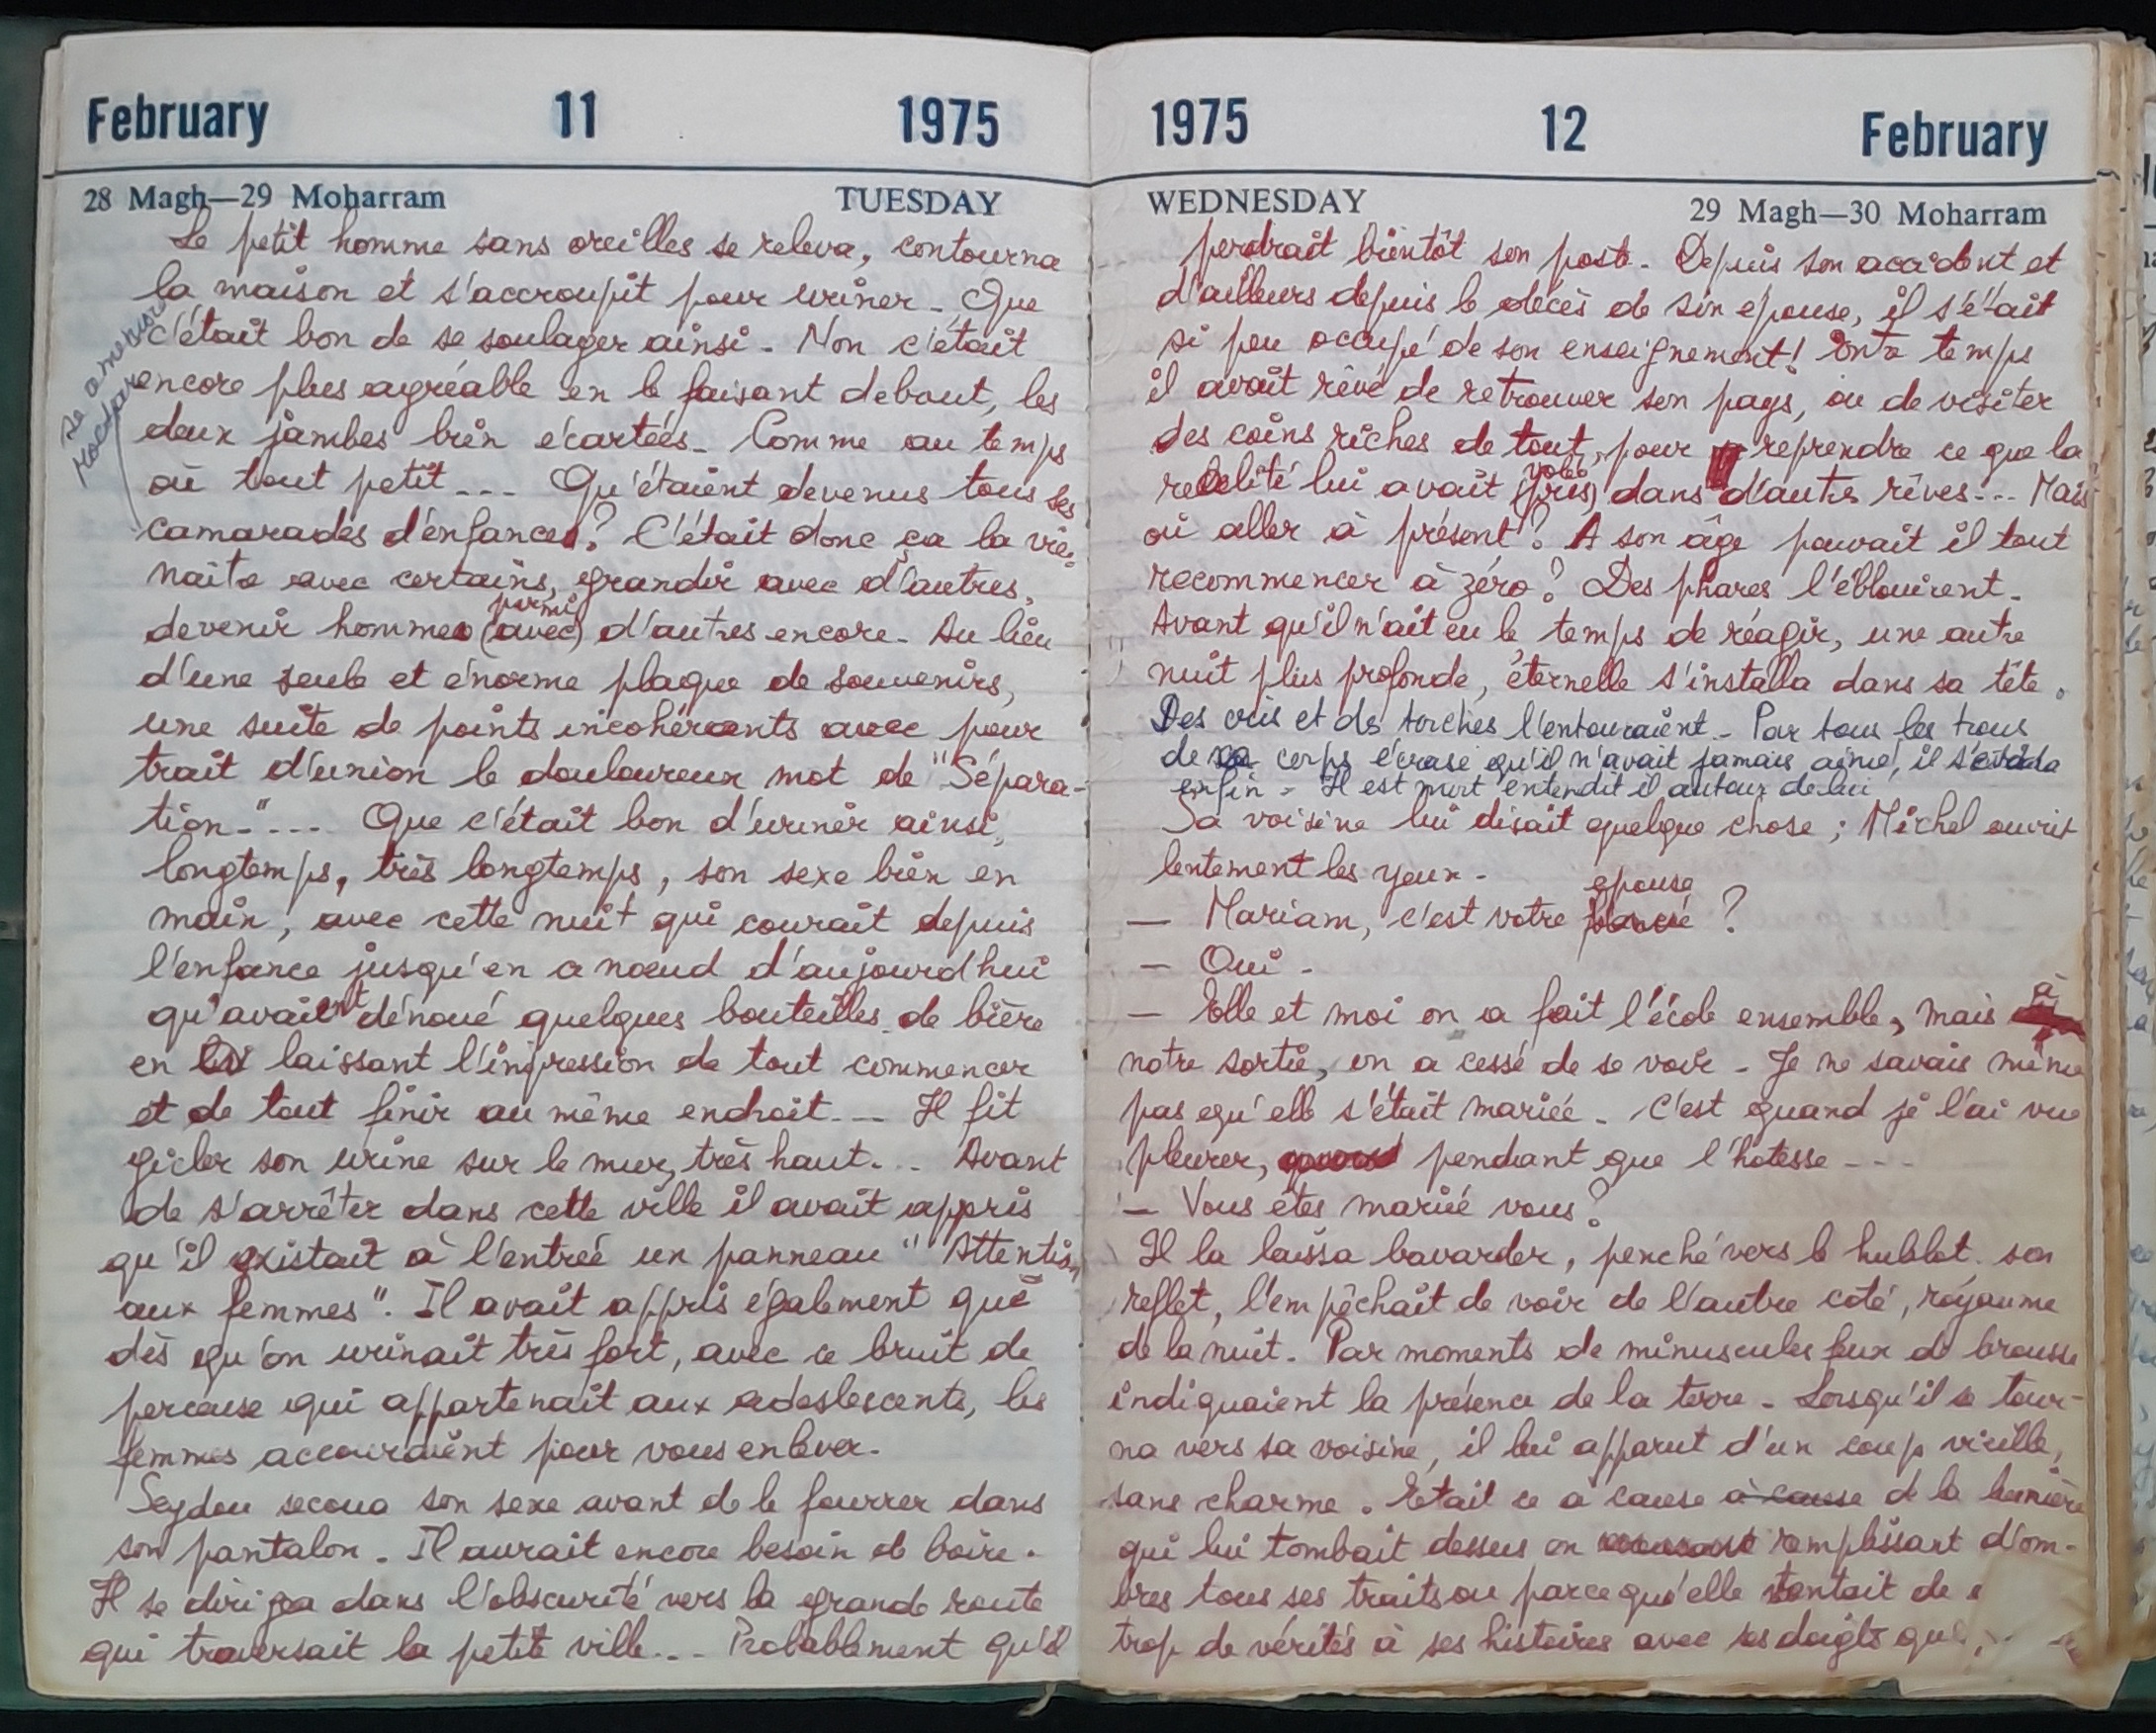 February 11 1975
28 Magh—29 Moharram TUESDAY
Le petit homme sans oreilles se releva, contourna
la maison et s'accroupit pour uriner - Que
c'était bon de se soulager ainsi - Non c'était
encore plus agréable en le faisant debout, les
deux jambes bien écartées - Comme au temps
où tout petit --- Qu'étaient devenus tous ses
camarades d'enfances? C'était donc ça la vie:
naître avec certains, grandir avec d'autres,
parmi
devenir hommes (avec) d'autres encore - Au lieu
d'une seule et énorme plaque de souvenirs,
une suite de points incohérents avec pour
trait d'union le douloureux mot de "Sépara-
tion-"--- Que c'était bon d'uriner ainsi,
longtemps, très longtemps, son sexe bien en
main, avec cette nuit qui courait depuis
l'enfance jusqu'en a nœud d'aujourd'hui
qu'avaient dénoué quelques bouteilles de bière
en laissant l'impression de tout commencer
et de tout finir au même endroit --- Il fit
gicler son urine sur le mur, très haut... Avant
de s'arrêter dans cette ville il avait appris
qu'il existait à l'entrée un panneau "Attention
aux femmes". Il avait appris également que
dès qu'on urinait très fort, avec ce bruit de
perceuse qui appartenait aux adeslescents, les
femmes accouraient pour vous enlever.
Seydou secoua son sexe avant de le fourrer dans
son pantalon. Il aurait encore besoin de boire.
Il se dirigea dans l'obscurité vers la grande route
qui traversait la petite ville... Probablement qu'il
1975 12 February
WEDNESDAY 29 Magh—30 Moharram
perdrait bientôt son poste. Depuis son accident et
d'ailleurs depuis le décès de son epouse, il s'était
si peu occupé de son enseignement! temps
il avait rêvé de retrouver son pays, ou de visiter
des coins riches de tout, pour reprendre ce que la
volé
réalité lui avait (pris) dans d'autres rêves... Mais
où aller à présent? A son âge pouvait il tout
recommencer à zéro? Des phares l'éblouirent.
Avant qu'il n'ait eu le temps de réagir, une autre
nuit plus profonde, éternelle s'installa dans sa tête.
Des cris et des torches l'entouraient - Par tous les trous
de corps écrasé qu'il n'avait jamais aimé, il s'évada
enfin - Il est mort entendit il autour de lui
Sa voisine lui disait quelque chose; Michel ouvrit
lentement les yeux -
epouse
— Mariam, c'est votre fiancée ?
— Oui -
— Elle et moi on a fait l'école ensemble, mais à
notre sortie, on a cessé de se voir - Je ne savais même
pas qu'elle s'était mariée - C'est quand je l'ai vue
pleurer, pendant que l'hotesse ---
— Vous êtes mariée vous?
Il la laissa bavarder, penché vers le hublot. son
reflet, l'empêchait de voir de l'autre coté, royaume
de la nuit. Par moments de minuscules feux de brousse
indiquaient la présence de la terre - Lorsqu'il se tour-
na vers sa voisine, il lui apparut d'un coup vieille,
sans charme. Etait ce à cause à cause de la lumière
qui lui tombait dessus en remplissant d'om-
bres tous ses traits ou parce qu'elle tentait de
trop de vérités à ses histoires avec ses doigts